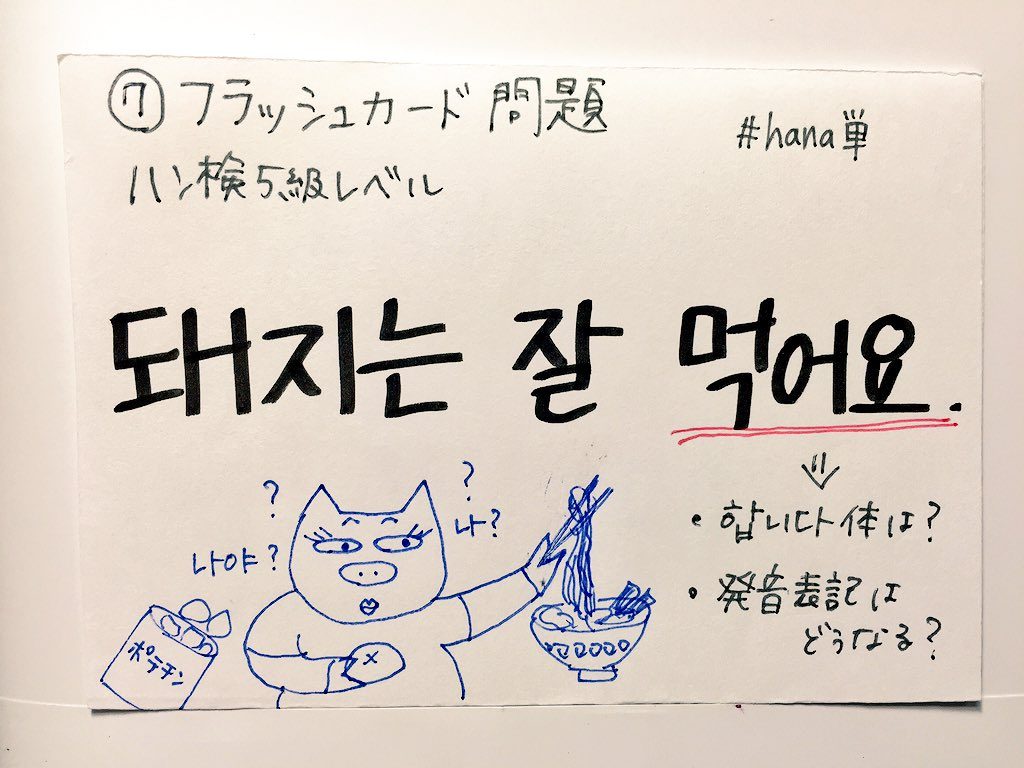 ⑦フラッシュカード問題
#hana単
ハン検5級レベル
돼지는 잘 먹어요.
?
?
나야?
나?
ポテチン
・합니다体は?
・発音表記は
どうなる?